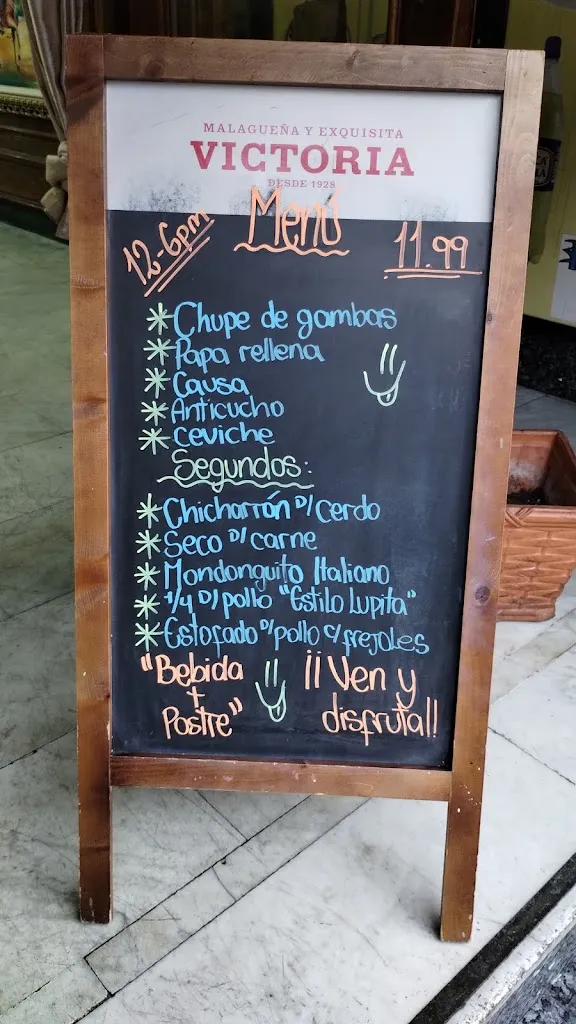 MALAGUEÑA Y EXQUISITA
VICTORIA
DESDE 1928
12-6pm
Menú
11.99
Chupe de gambas
Papa rellena
Causa
Anticucho
Ceviche
Segundos:
Chicharrón D/ cerdo
Seco D/ carne
Mondonguito Italiano
1/4 D/ pollo "Estilo Lupita"
Estofado D/ pollo c/ frejoles
"Bebida
+
Postre"
¡¡Ven y
disfruta!!